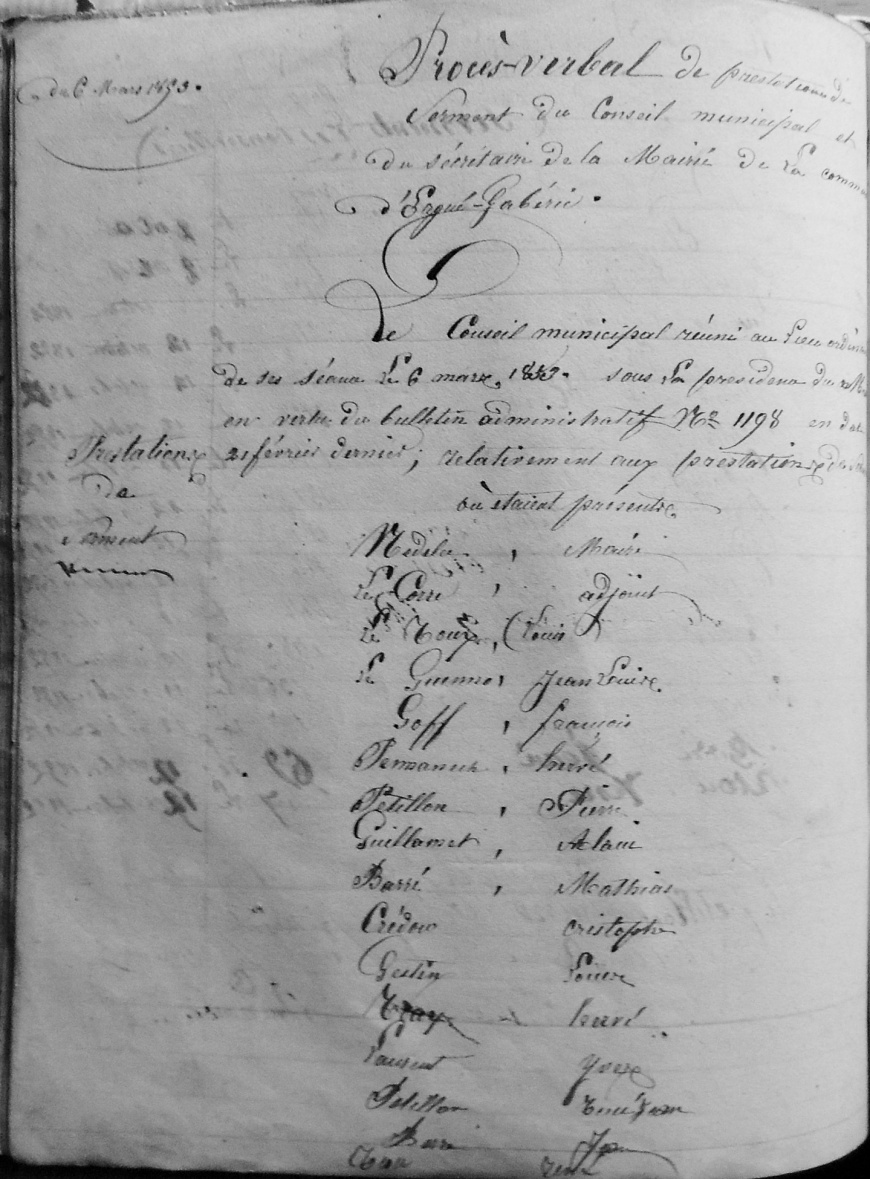 du 6 Mars 1853.
Procès-verbal de prestation de
Serment du Conseil municipal et
du sécrétaire de la Mairie de La commune
d'Ergué-Gabéric.
Le Conseil municipal réuni au Lieu ordin
de ses séance Le 6 mars, 1853. sous La présidence du M
en vertu du bulletin administratif No 1198 en da
21 février dernier; relativement aux prestations de
Prestations
de
serment
où étaient présents
Nédélec, Maire
Le Corre, adjoint
Le (Louis)
Le Guennec, Jean Louis
Goff, françois
hervé
Pétillon, Pierre
Guillamet, Alain
Barré, Mathias
Crédou cristophe
Gestin Louis
hervé
Laurent yves
Pétillon